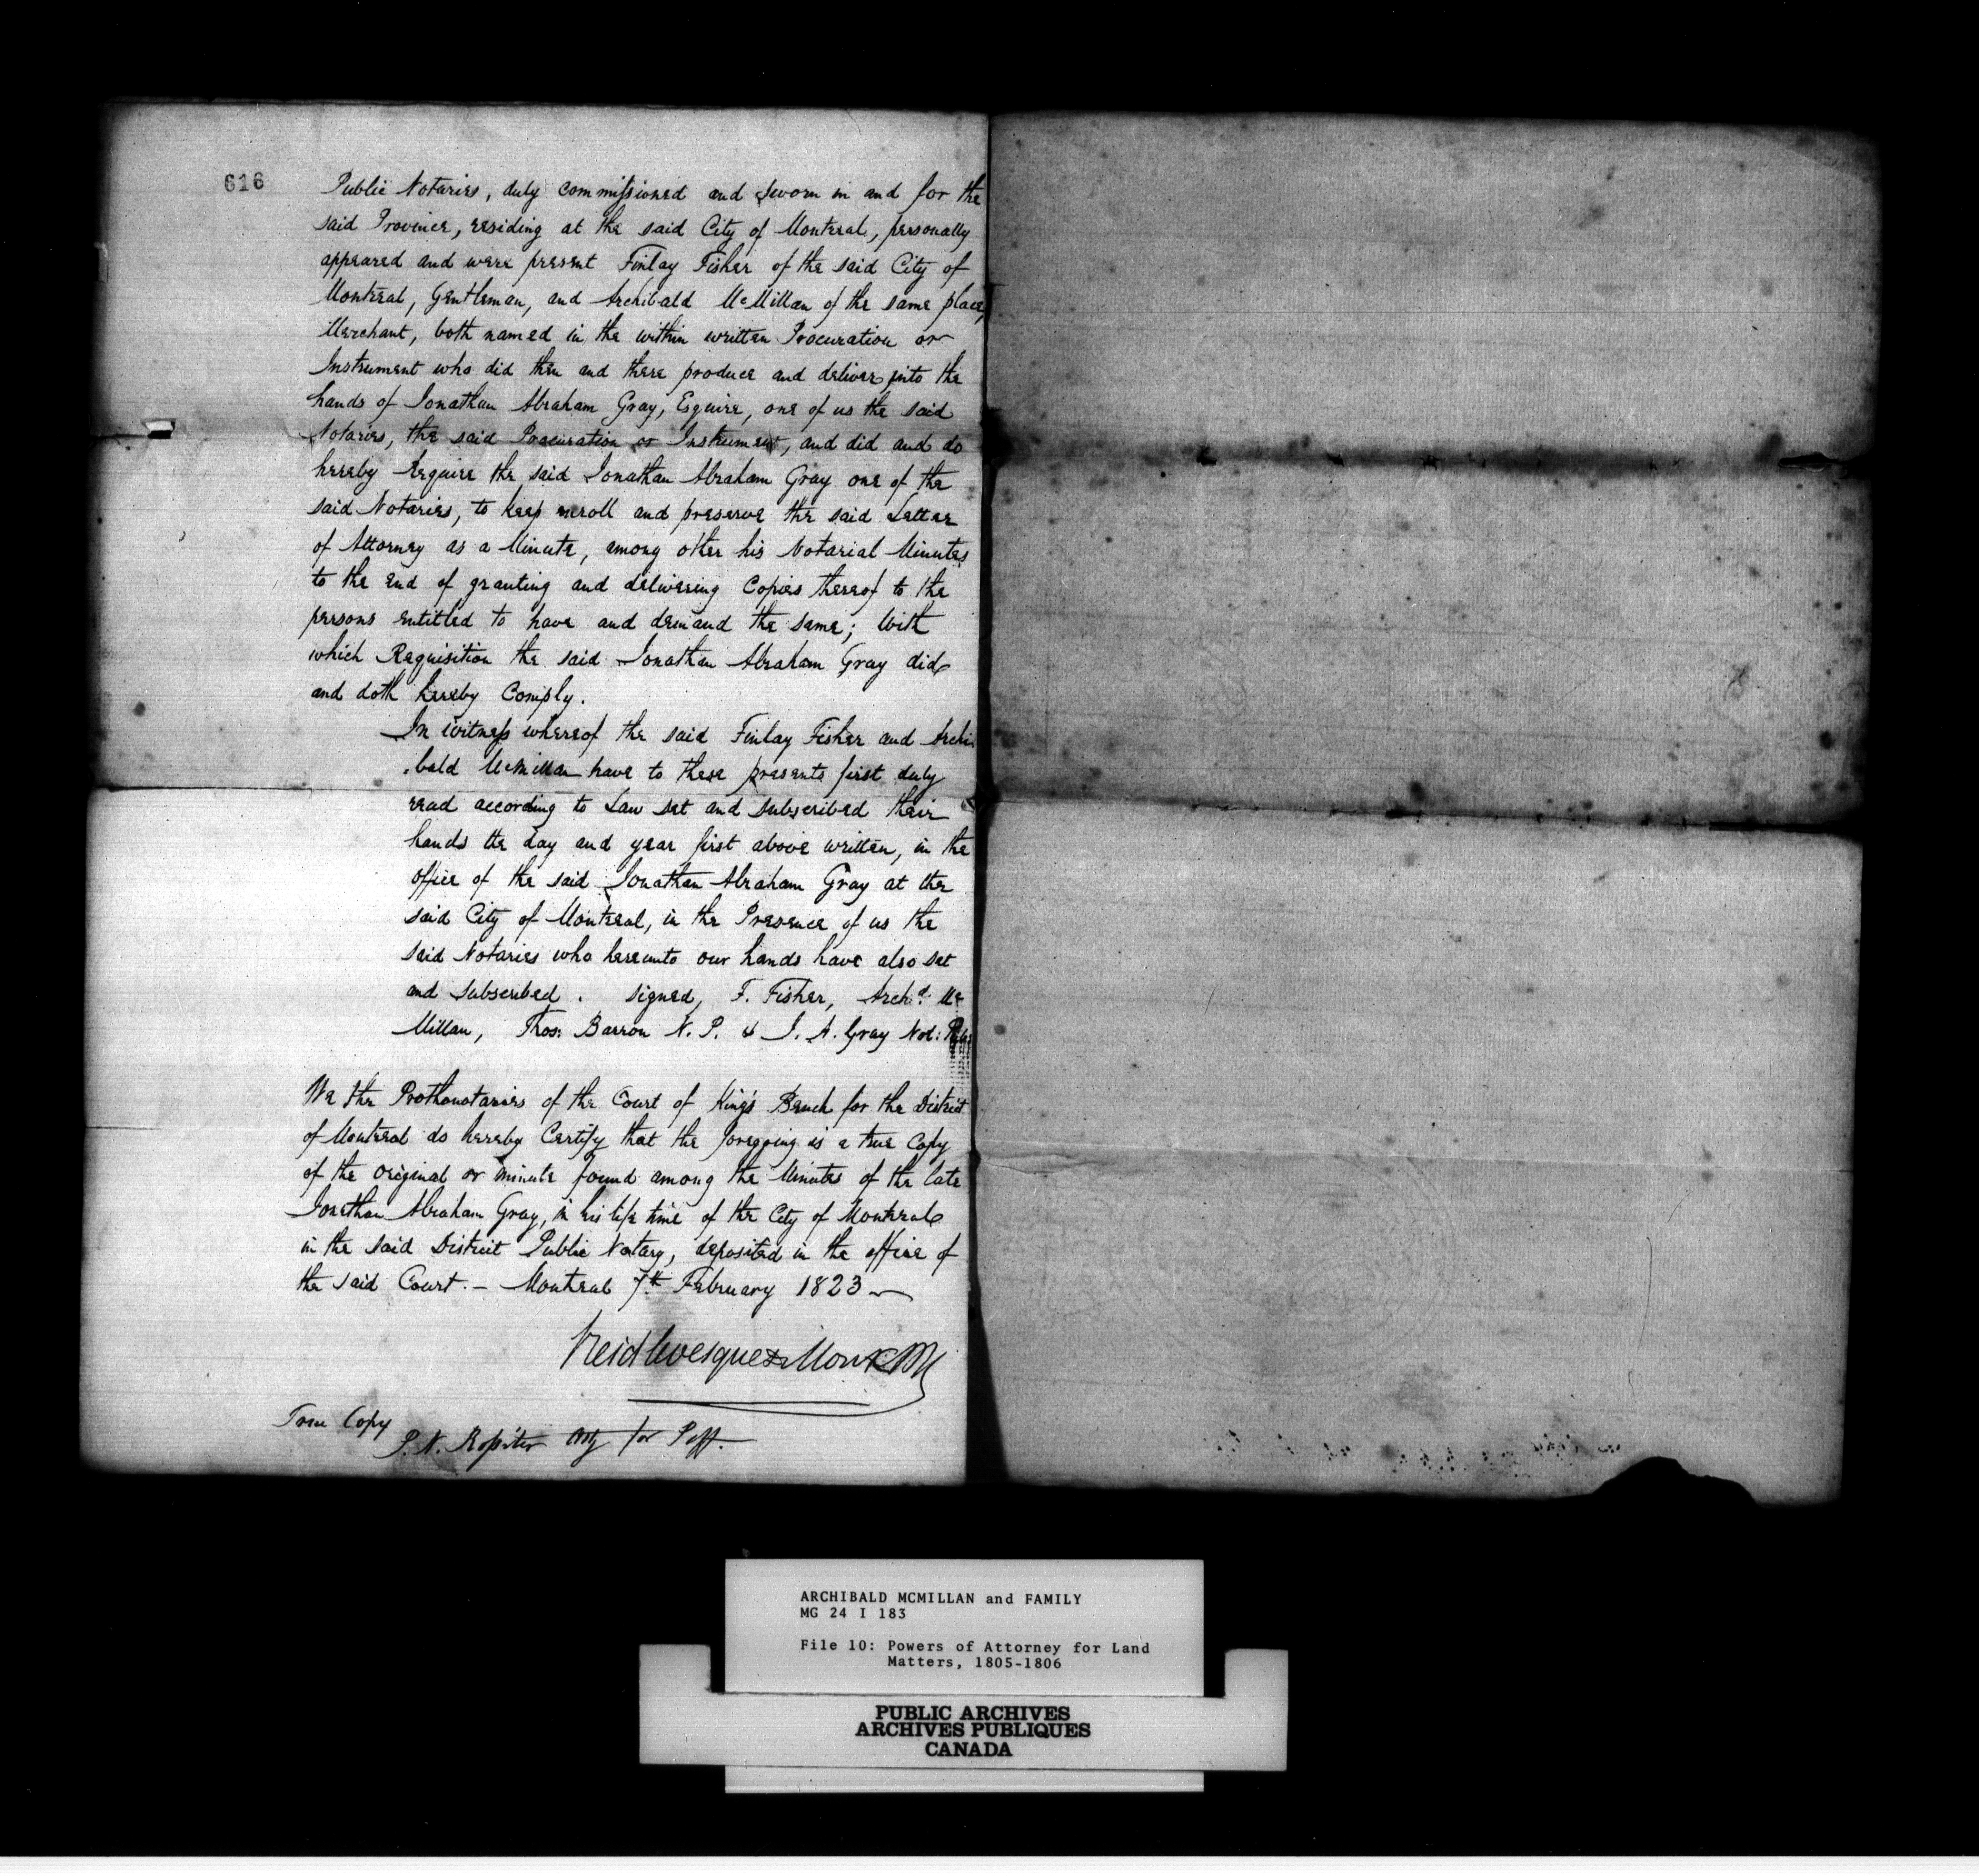 616
Public Notaries, duly commissioned and sworn in and for the
said Province, residing at the said City of Montreal, personally
appeared and were present Finlay Fisher of the said City of
Montreal, Gentleman, and Archibald McMillan of the same place,
Merchant, both named in the within written Procuration or
Instrument who did then and there produce and deliver into the
hands of Jonathan Abraham Gray, Esquire, one of us the said
Notaries, the said Procuration or Instrument, and did and do
hereby Require the said Jonathan Abraham Gray one of the
said Notaries, to keep enroll and preserve the said Letter
of Attorney as a Minute, among other his Notarial Minutes
to the end of granting and delivering Copies thereof to the
persons entitled to have and demand the same; With
which Requisition the said Jonathan Abraham Gray did
and doth hereby Comply.
In witness whereof the said Finlay Fisher and Archi
.bald McMillan have to these presents first duly
read according to Law set and subscribed their
hands the day and year first above written, in the
office of the said Jonathan Abraham Gray at the
said City of Montreal, in the Presence of us the
said Notaries who hereunto our hands have also set
and subscribed. signed, F. Fisher, Archd. Mc
Millan, Thos: Barron N. P. & J. A. Gray Not: Pub:
We the Prothonotaries of the Court of King's Bench for the District
of Montreal do hereby Certify that the foregoing is a true Copy
of the original or minute found among the Minutes of the late
Jonathan Abraham Gray, in his life time of the City of Montreal
in the said District Public Notary, deposited in the office of
the said Court. – Montreal 7th February 1823
Reid Levesque & Monk
True Copy
P. N. Rossiter Atty for Pltf.
ARCHIBALD MCMILLAN and FAMILY
MG 24 I 183
File 10: Powers of Attorney for Land
Matters, 1805-1806
PUBLIC ARCHIVES
ARCHIVES PUBLIQUES
CANADA